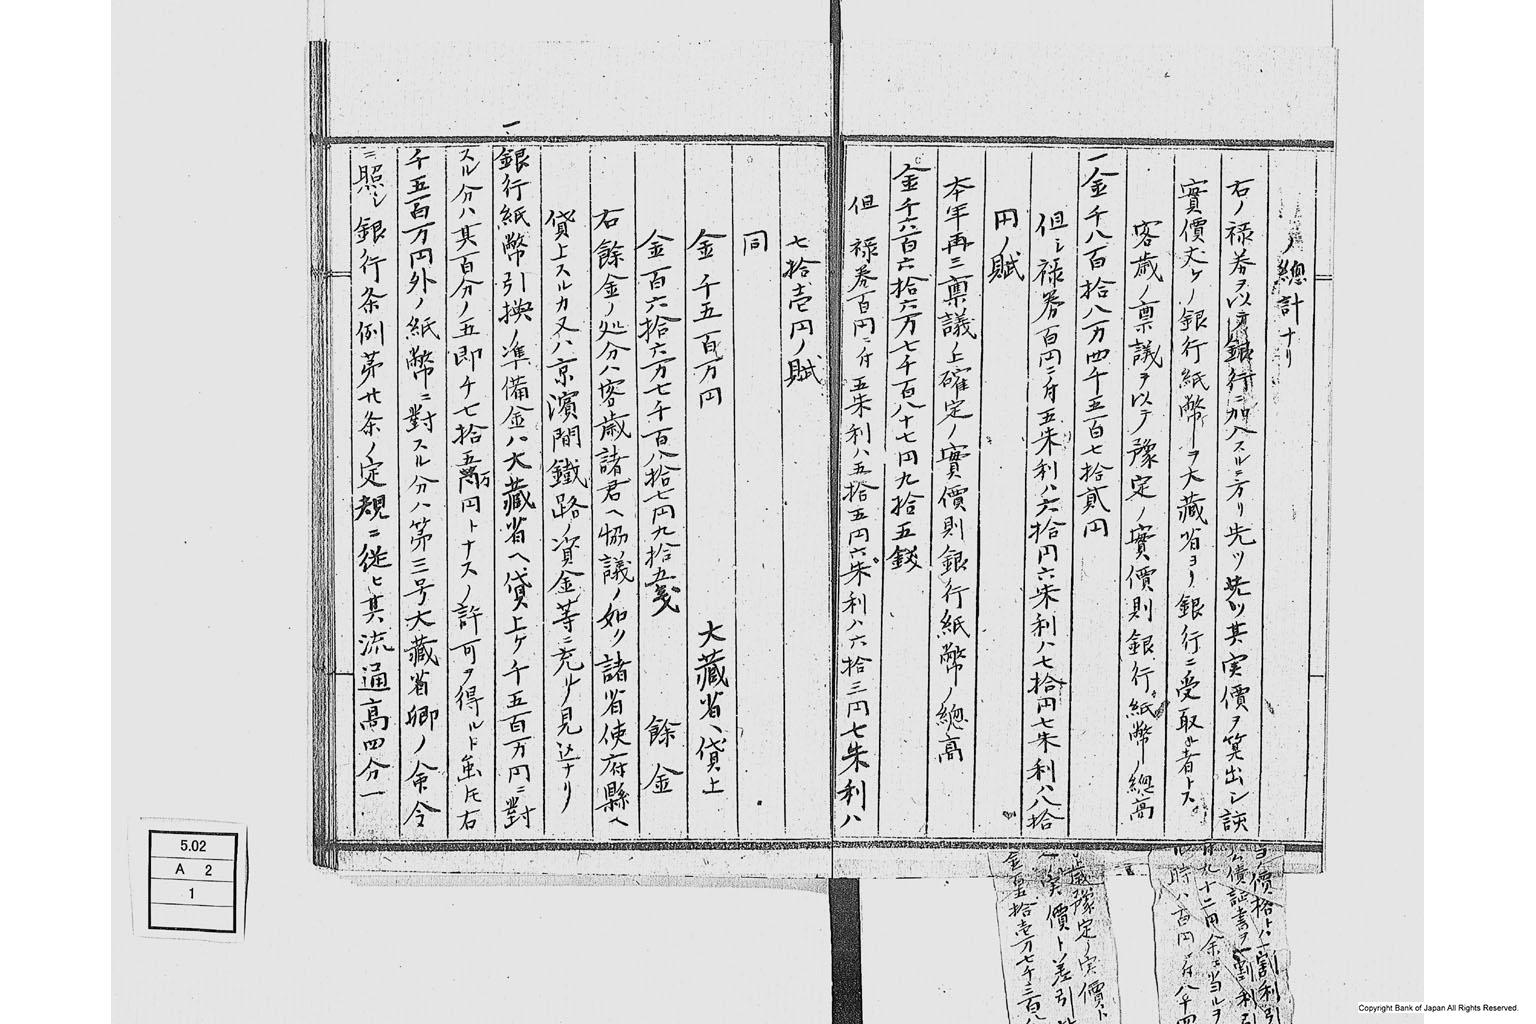 ノ總計ナリ
右ノ禄券ヲ以テ銀行ニ加入スルニ方リ先ツ其実價ヲ算出シ該
實價丈ケノ銀行紙幣ヲ大藏省ヨリ銀行ニ受取ル者トス
客歳ノ稟議ヲ以テ豫定ノ實價則銀行紙幣ノ總高
一金千八百拾八万四千五百七拾貳円
但シ禄券百円ニ付五朱利ハ六拾円六朱利ハ七拾円七朱利ハ八拾
円ノ賦
本年再三稟議ノ上確定ノ實價則銀行紙幣ノ總高
金千六百六拾六万七千百八十七円九拾五錢
但禄券百円ニ付五朱利ハ五拾五円六朱利ハ六拾三円七朱利ハ
七拾壱円ノ賦
同
金千五百万円 大藏省ヘ貸上
金百六拾六万七千百八拾七円九拾五戔 餘金
右餘金ノ処分ハ客歳諸君ヘ協議ノ如ク諸省使府縣ヘ
貸上スルカ又ハ京濱間鐵路ノ資金等ニ充ルノ見込ナリ
一銀行紙幣引換ノ準備金ハ大藏省ヘ貸上ケ千五百万円ニ對
スル分ハ其百分ノ五即チ七拾五万円トナスノ許可ヲ得ルト虽𪜈右
千五百万円外ノ紙幣ニ對スル分ハ第三号大藏省卿ノ命令
ニ照シ銀行条例第廿条ノ定規ニ従ヒ其流通高四分一
價格トハ割利引
公債証書ヲ割利引
九十二円余ニ当ルヲ
時ハ百円ニ付八十四
歳豫定ノ実價ト
実價ト差引
金五拾壱万七千三百八
5.02
A 2
1
Copyright Bank of Japan All Rights Reserved.